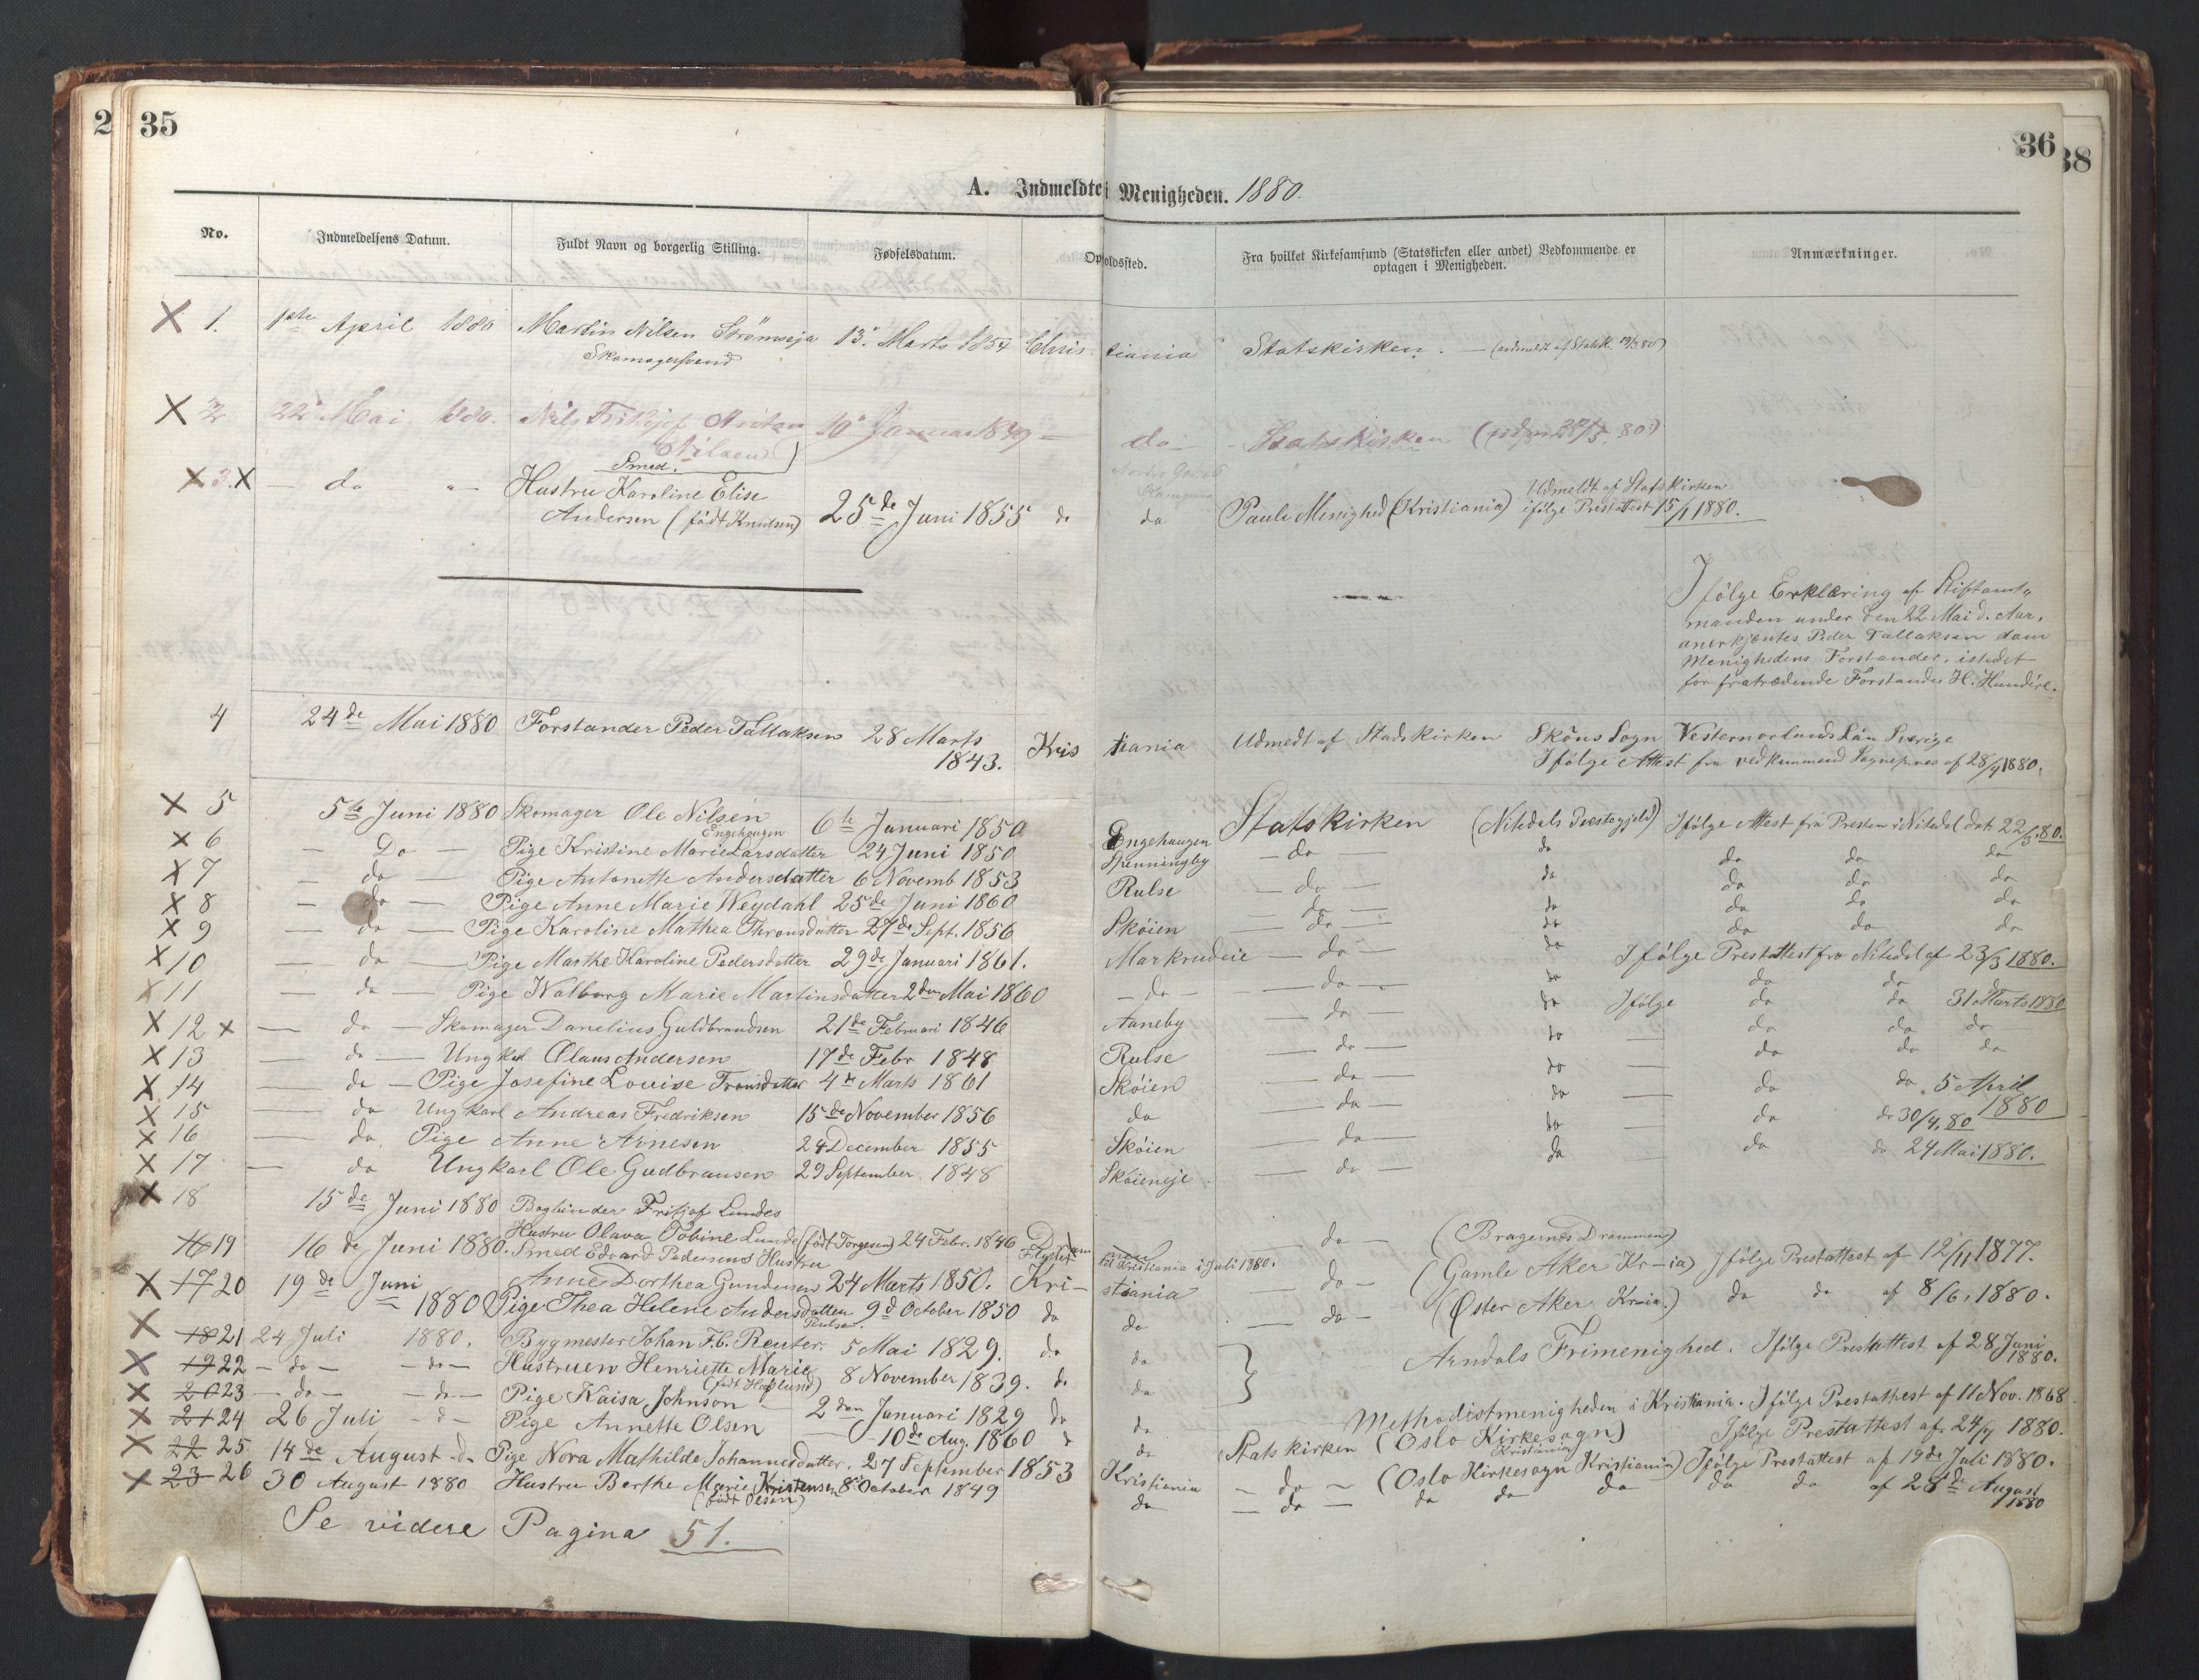 2 35
36 38
A. Indmeldte i Menigheden. 1880.
No. Indmeldelsens Datum. Fuldt Navn og borgerlig Stilling. Fødselsdatum. Opholdssted. Fra hvilket Kirkesamfund (Statskirken eller andet) Vedkommende er optagen i Menigheden. Anmærkninger.
X 1. 1ste April 1880 Martin Nilsen Strømseja 13 Marts 1854 Chris tiania Statskirken.
Skomagersvend
X 2 22 Mai 1880. Nils Fritjof Anton 10 Januar 1849 do Statskirken
Nilsen
Smed.
X 3. X — do — Hustru Karoline Elise
Andersen (født Knutsen) 25de Juni 1855 do do Pauli Menighed (Kristiania) Udmeldt af Statskirken
ifølge Prestattest 15/1 1880.
Ifølge Erklæring af Stiftamt-
manden under den 22 Mai d. Aar,
anerkjentes Peder Tallaksen som
Menighedens Forstander, istedet
for fratrædende Forstander H.
4 24de Mai 1880 Forstander Peder Tallaksen 28 Marts
1843. Kris tiania Udmedt af Stadskirken Sköns Sogn Vesternorlands Län Sverige
Ifølge Attest fra vedkummend af 28/4 1880.
X 5 5te Juni 1880 Skomager Ole Nilsen
Engehougen 6te Januari 1850 Engehaugen Statskirken (Nitedels Prestegjeld) Ifølge Attest fra Presten i Nitedal dat. 22/5 80.
X 6 — Do — Pige Kristine Marie Larsdatter 24 Juni 1850 Spenningby — do — do do do do
X 7 — do — Pige Antonette Andersdatter 6 Novemb 1853 Rulse — do — do do do do
X 8 — do — Pige Anne Marie Weydahl 25de Juni 1860 Skøien — do — do do do do
X 9 — do — Pige Karoline Mathea Thronsdatter 27de Sept. 1856 Markrudeie — do — do do do do
X 10 — do — Pige Marthe Karoline Pedersdatter 29de Januari 1861. — do — — do — do Ifølge Prestattest fra Nitedal af 23/5 1880.
X 11 — do — Pige Valborg Marie Martinsdatter 2den Mai 1860 — do — do do do do
X 12 X — do — Skomager Danelius Guldbrandsen 21de Februari 1846 Aaneby — do — do Ifølge do do 31 Marts 1880
X 13 — do — Ungkarl Olaus Andersen 17de Febr 1848 Rulse — do — do — do do do
X 14 — do — Pige Josefine Louise Tronsdatter 4de Marts 1861 Skøien — do — do — do do do
X 15 — do Ungkarl Andreas Fredriksen 15de November 1856 do — do — do — do do 5 April 1880
X 16 — do Pige Anne Arnesen 24 December 1855 Skøien — do — do — do do 30/4, 80
X 17 — do Ungkarl Ole Gudbransen 29 September 1848 Skøieneje — do — do — do do 24 Mai 1880.
X 18 15de Juni 1880 Bogbinder Fritjof Lundes
Hustru Olava Tobine Lunde (født Torgesen) 24 Febr. 1846 — do — (Bragernes Drammen)
16 19 16de Juni 1880. Smed Edvard Pedersens Hustru
Anne Dorthea Gundersen 24 Marts 1850. Kri- stiania — do — (Gamle Aker Kr-ia) Ifølge Prestattest af 12/11 1877.
til Kristiania i Juli 1880.
X 17 20 19de Juni 1880 Pige Thea Helene Andersdatter 9d October 1850 do do — do — (Øster Aker Kr-ia.) do do af 8/6, 1880.
Rulse.
X 18 21 24 Juli 1880. Bygmester Johan F. C. Reuter. 5 Mai 1829. do do } Arndals Frimenighed. Ifølge Prestattest af 28 Juni 1880.
X 19 22 — do — — do — Hustruen Henriette Marie 8 November 1839. do do
X 20 23 — do — — do — Pige Kaisa Johnson 2den Januari 1829 do do Methodistmenigheden i Kristiania. Ifølge Prestattest af 11 Nov. 1868
X 21 24 26 Juli — d — Pige Annette Olsen 10de Aug. 1860 do Stats kirken (Oslo Kirkesogn) Ifølge Prestattest af 24/7 1880.
Kristiania
X 22 25 14de August d- Pige Nora Mathilde Johannesdatter. 27 September 1853 Kristiania — do — (Oslo Kirkesogn Kristiania) Ifølge Prestattest af 19de Juli 1880.
X 23 26 30 August 1880 Hustru Berthe Marie Kristensen 8 October 1849 do — do — do do do do do af 28de August 1880
(født Olsen)
Se videre Pagina 51.